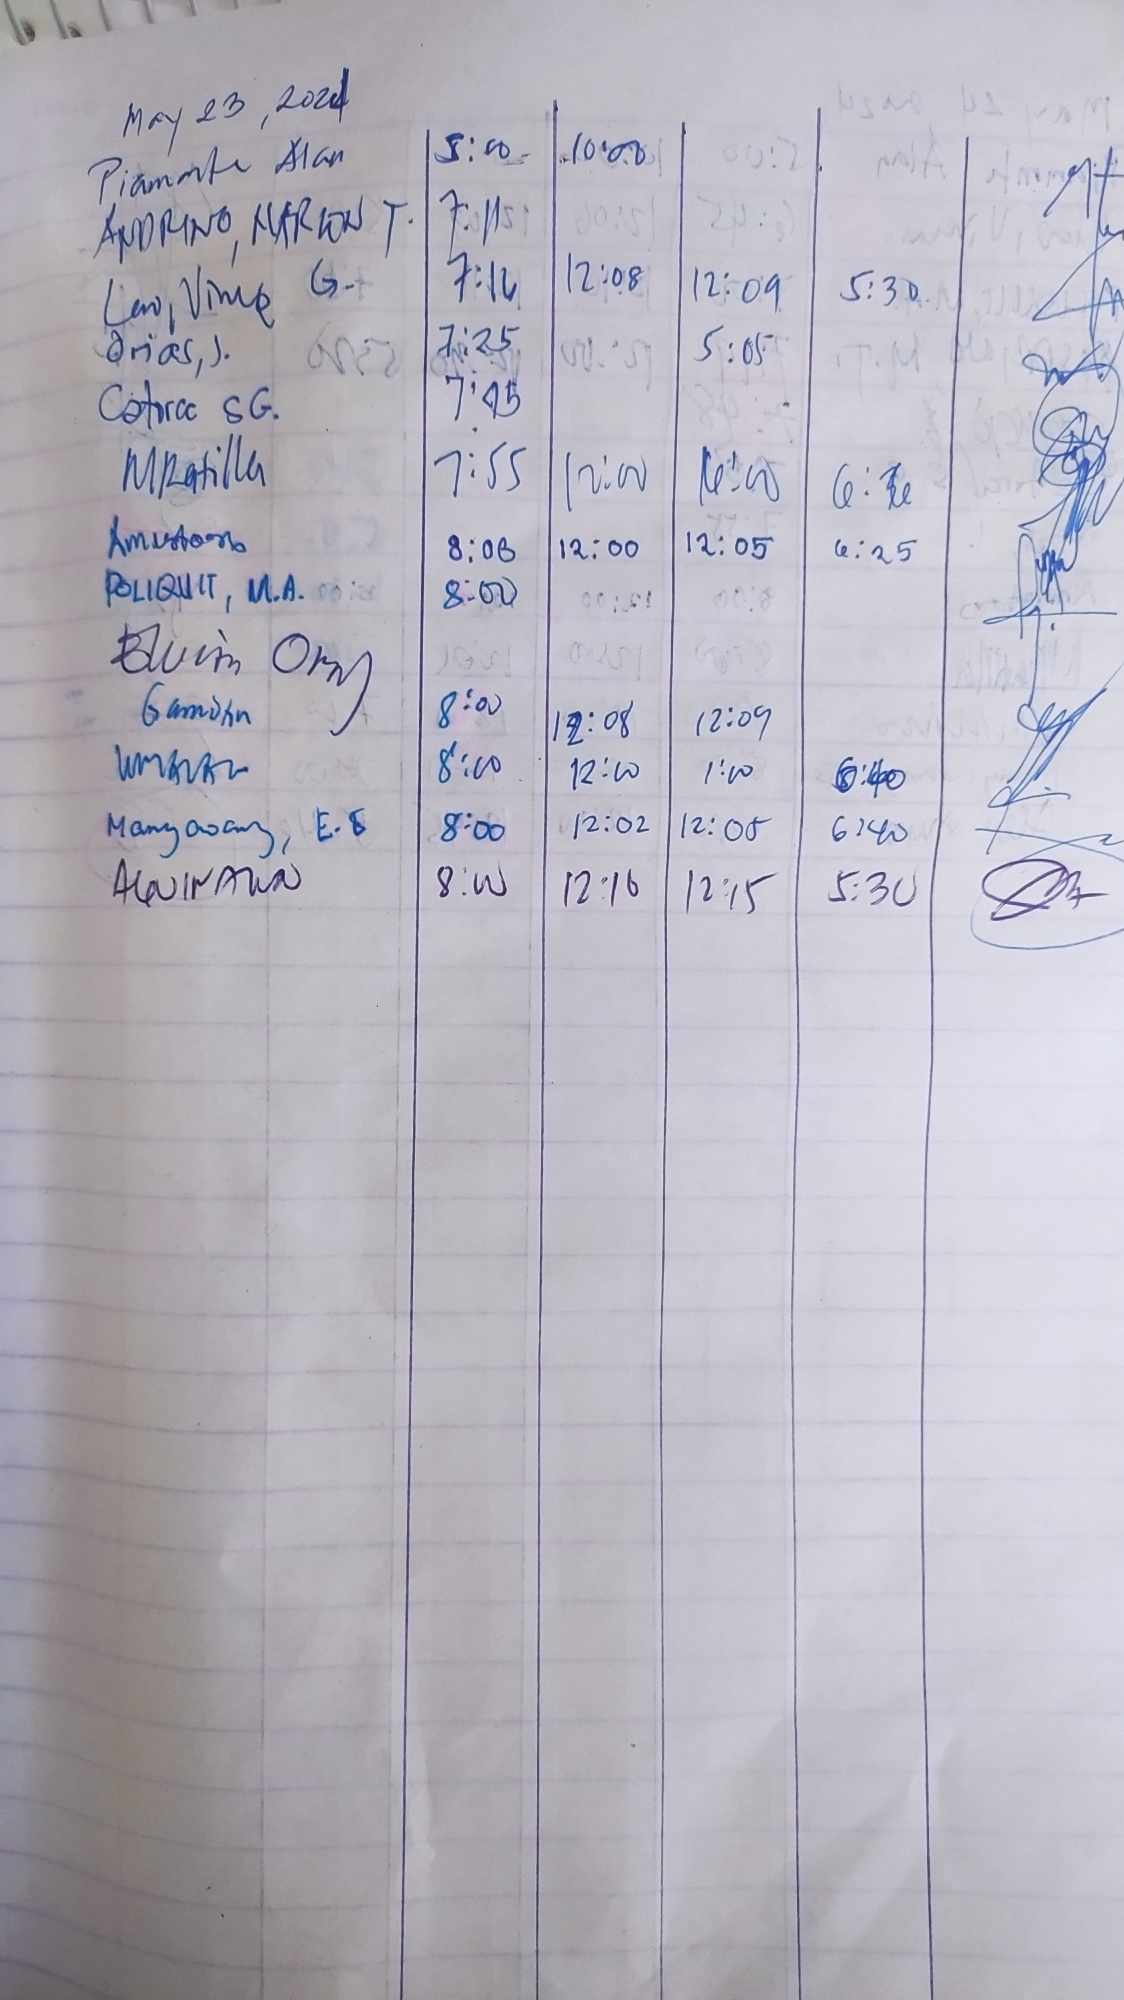 May 23, 2024
Piamonte Alan 5:00 10:00
ANDRINO, MARLON T. 7:11
Leo, Vince G. 7:16 12:08 12:09 5:30
Arias, J. 7:25 5:05
SG. 7:45
MRatilla 7:55 12:00
8:00 12:00 12:05 6:25
POLIQUIT, M.A. 8:00
Elwin
8:00 12:08 12:09
8:00 12:00 1:00 6:40
Mangawang, E. 8:00 12:02 12:05 6:40
8:00 12:10 12:15 5:30